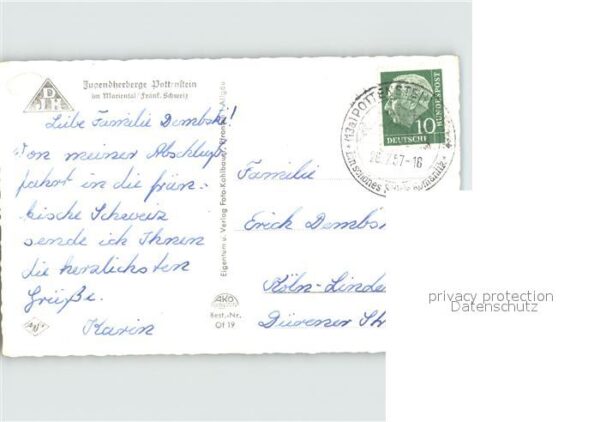 DJH
Jugendherberge Pottenstein
im Mariental/Fränk. Schweiz
Liebe Familie Dembski!
Von meiner Abschluß-
fahrt in die frän-
kische Schweiz
sende ich Ihnen
die herzlichsten
Grüße.
Karin
Eigentum u. Verlag Foto-Kohlbauer, Pfronten, Allgäu
AKO
Best.-Nr.
Of 19
(13a) POTTENSTEIN
26.7.57-16
10
DEUTSCHE
BUNDESPOST
Familie
Erich Dembsk
Köln-Linde
Dürener Str
privacy protection
Datenschutz